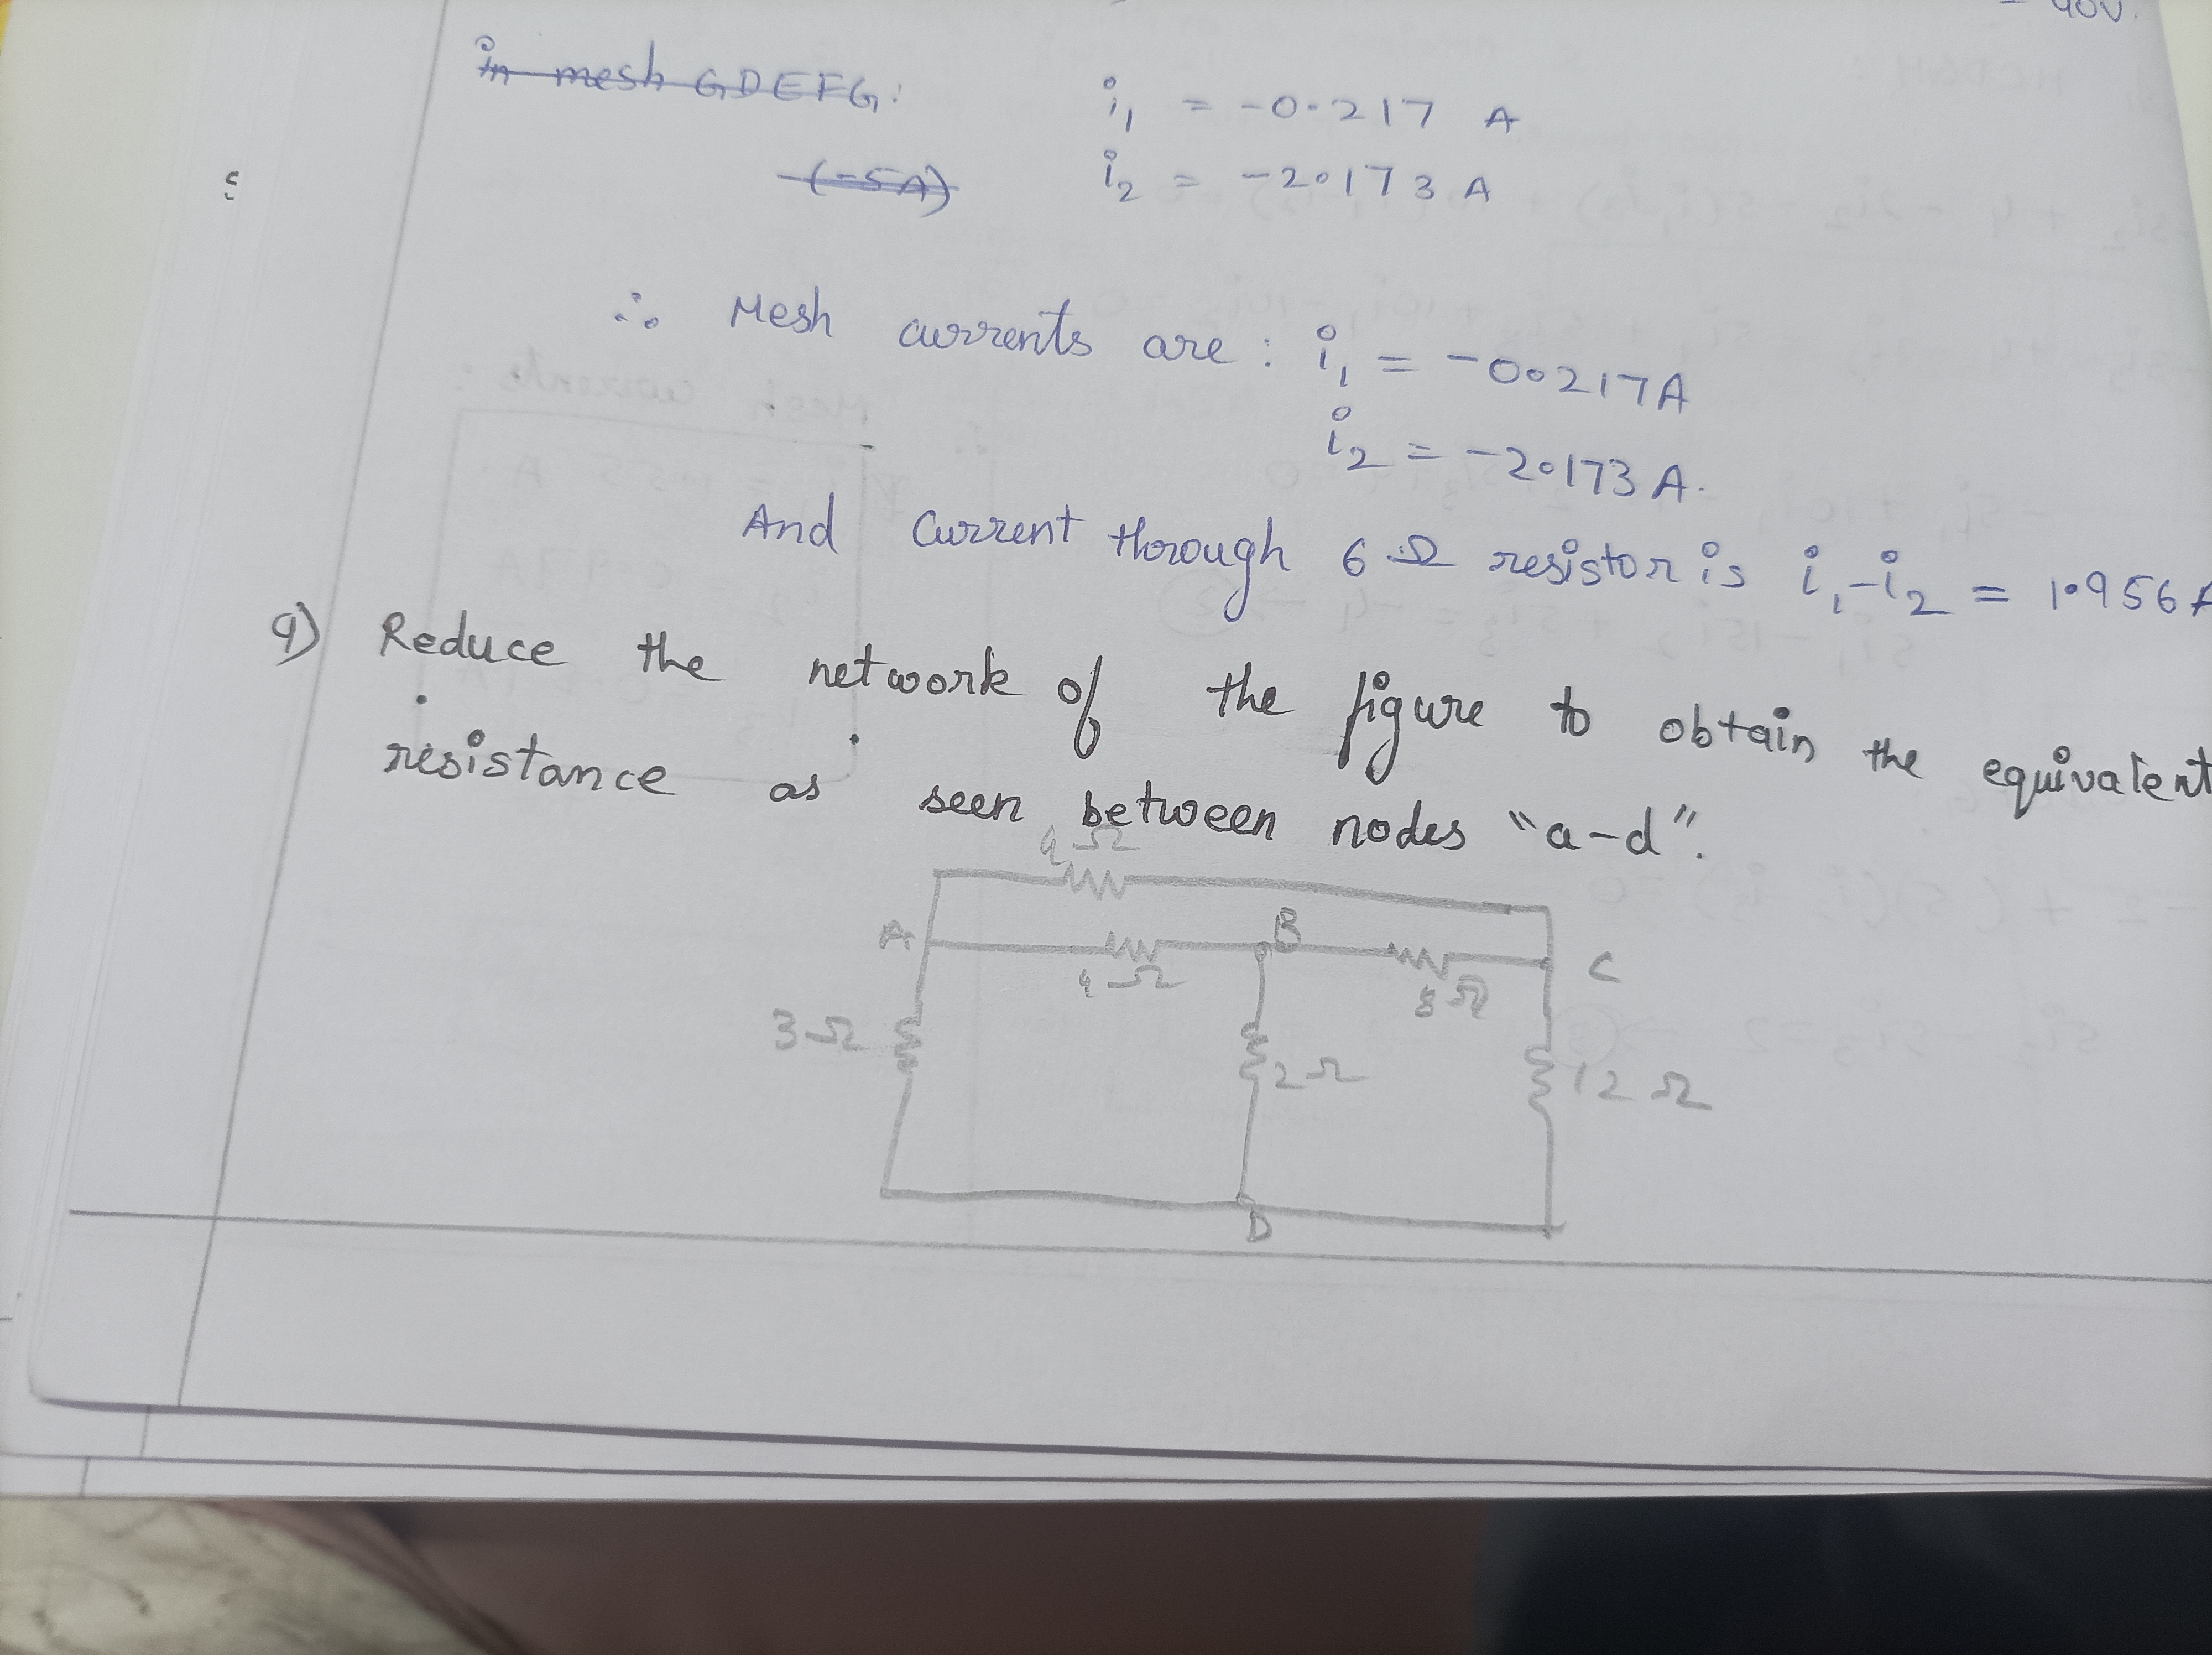 - 40V.
in mesh GDEFG:
i₁ = -0.217 A
(-5A)
i₂ = -2.173 A
∴ Mesh currents are: i₁ = -0.217A
i₂ = -2.173 A.
And Current through 6 Ω resistor is i₁-i₂ = 1.956A
9) Reduce the network of the figure to obtain the equivalent
resistance as seen between nodes "a-d".
Ω
A
B
C
4Ω
8Ω
3Ω
2Ω
12Ω
D